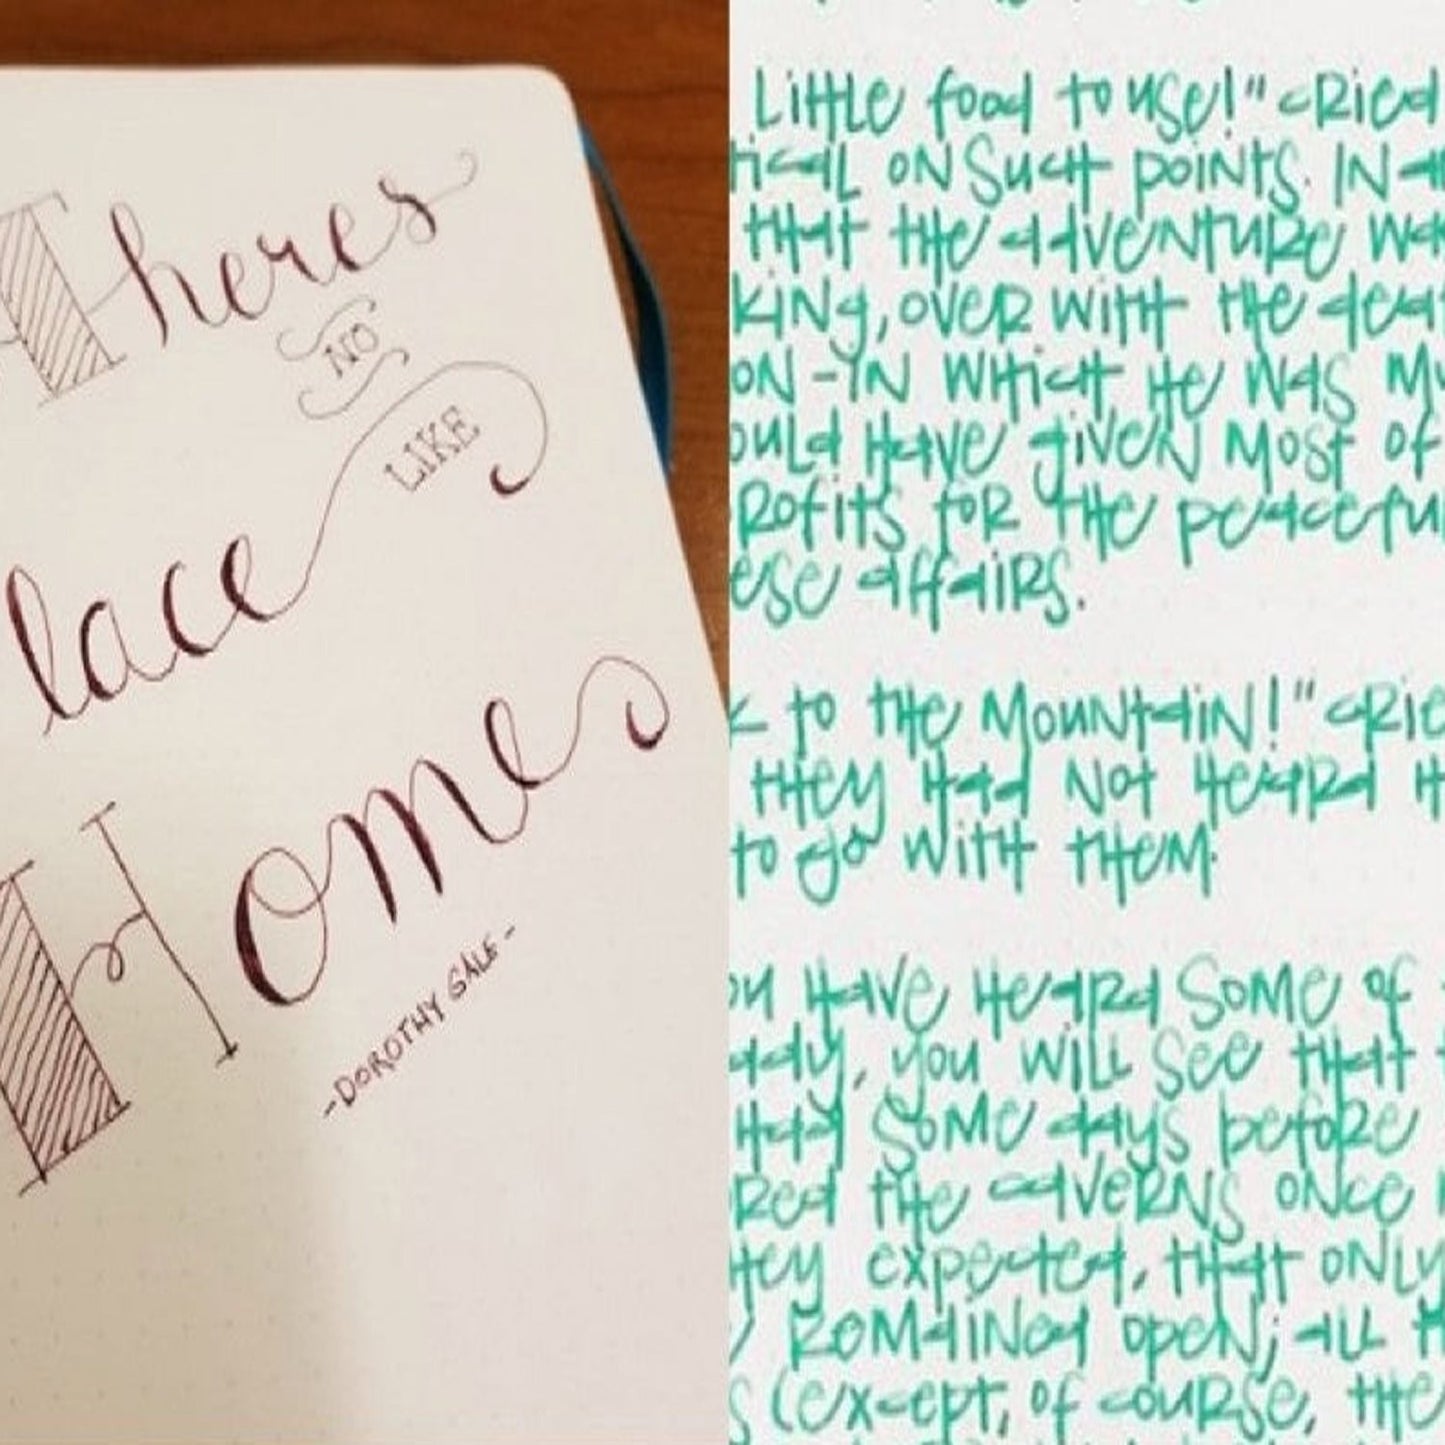 Theres
NO
LIKE
lace
Home
-DOROTHY GALE-
Little food to use!" cried
ical on such points. In a
that the adventure wa
king, over with the dea
on-in which he was m
ould have given most of
rofits for the peaceful
ese affairs.
k to the mountain!" crie
they had not heard h
to go with them.
ou have heard some of t
ady, you will see that t
had some days before
red the caverns once
hey expected, that only
remained open; all th
s (except, of course, the